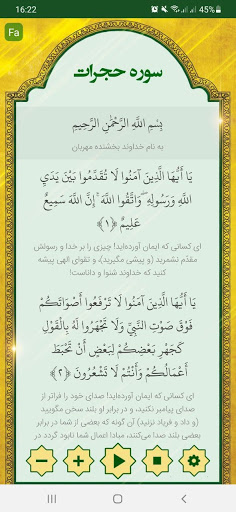 16:22
45%
Fa
سوره حجرات
بِسْمِ اللَّهِ الرَّحْمَٰنِ الرَّحِيمِ
به نام خداوند بخشنده مهربان
يَا أَيُّهَا الَّذِينَ آمَنُوا لَا تُقَدِّمُوا بَيْنَ يَدَيِ
اللَّهِ وَرَسُولِهِ ۖ وَاتَّقُوا اللَّهَ ۚ إِنَّ اللَّهَ سَمِيعٌ
عَلِيمٌ ﴿١﴾
ای کسانی که ایمان آورده‌اید! چیزی را بر خدا و رسولش
مقدّم نشمرید (و پیشی مگیرید)، و تقوای الهی پیشه
کنید که خداوند شنوا و داناست!
يَا أَيُّهَا الَّذِينَ آمَنُوا لَا تَرْفَعُوا أَصْوَاتَكُمْ
فَوْقَ صَوْتِ النَّبِيِّ وَلَا تَجْهَرُوا لَهُ بِالْقَوْلِ
كَجَهْرِ بَعْضِكُمْ لِبَعْضٍ أَنْ تَحْبَطَ
أَعْمَالُكُمْ وَأَنْتُمْ لَا تَشْعُرُونَ ﴿٢﴾
ای کسانی که ایمان آورده‌اید! صدای خود را فراتر از
صدای پیامبر نکنید، و در برابر او بلند سخن مگویید
(و داد و فریاد نزنید) آن گونه که بعضی از شما در برابر
بعضی بلند صدا می‌کنند، مبادا اعمال شما نابود گردد در